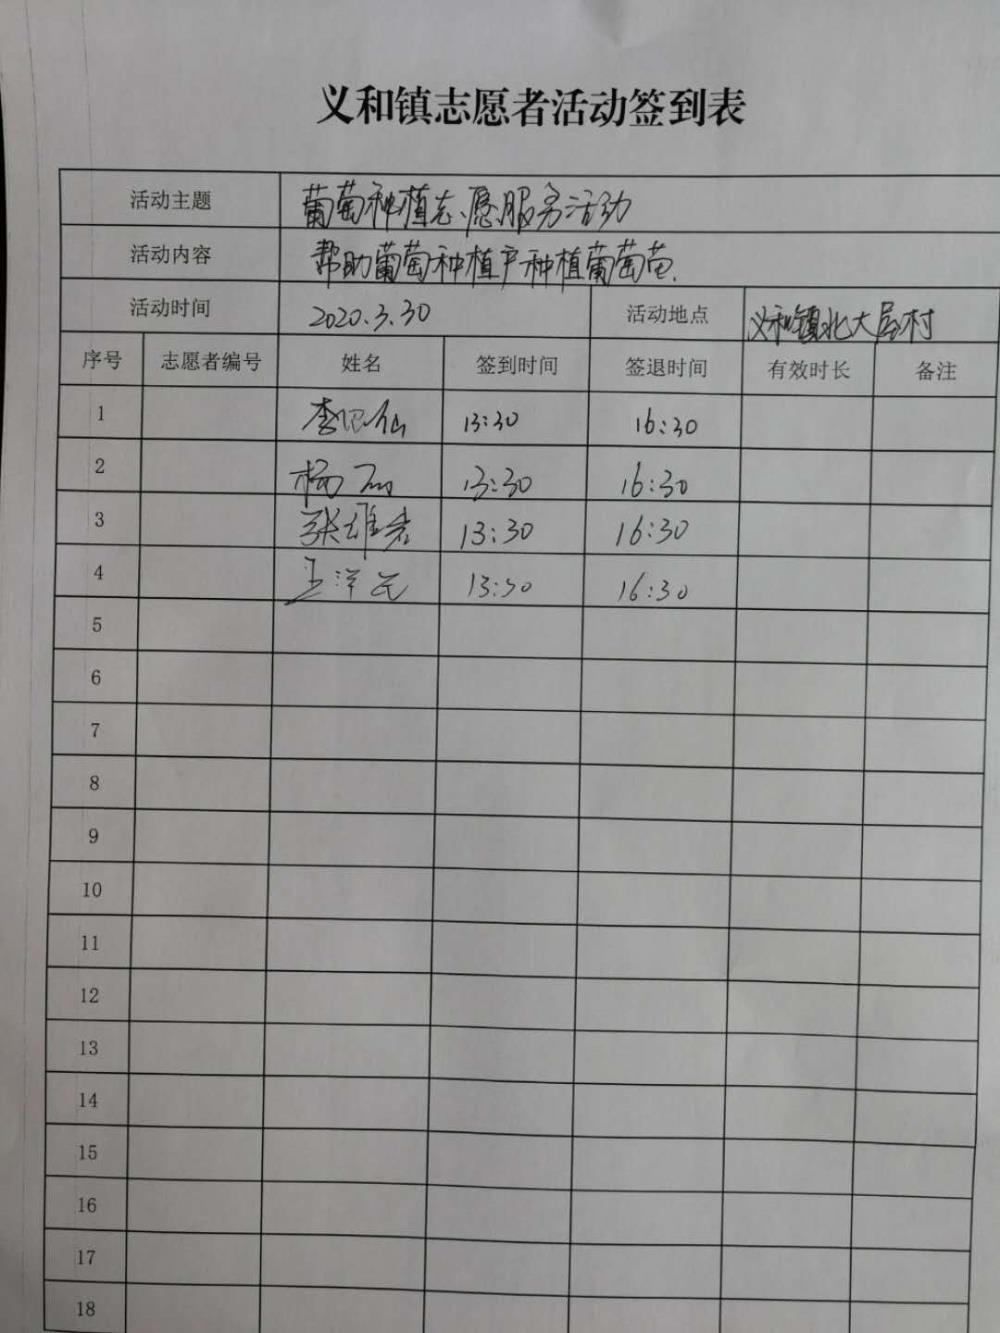 义和镇志愿者活动签到表
活动主题 葡萄种植志愿服务活动
活动内容 帮助葡萄种植户种植葡萄苗.
活动时间 2020.3.30 活动地点 义和镇北大屋村
序号 志愿者编号 姓名 签到时间 签退时间 有效时长 备注
1 李 仙 13:30 16:30
2 杨 13:30 16:30
3 张雄 13:30 16:30
4 王洋 13:30 16:30
5
6
7
8
9
10
11
12
13
14
15
16
17
18